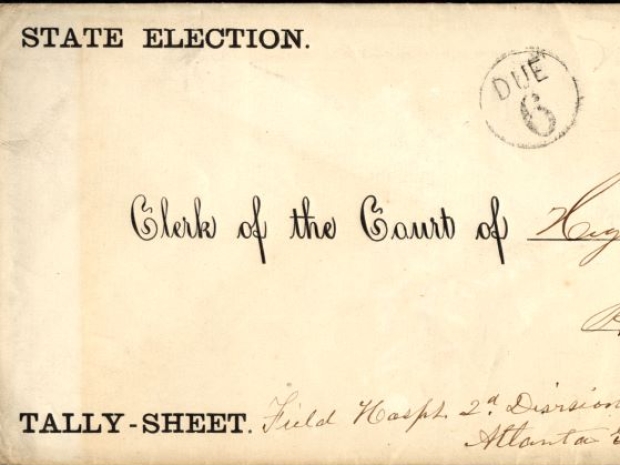 STATE ELECTION.
DUE
6
Clerk of the Court of
TALLY-SHEET. Field Hospt. 2d. Division
Atlanta